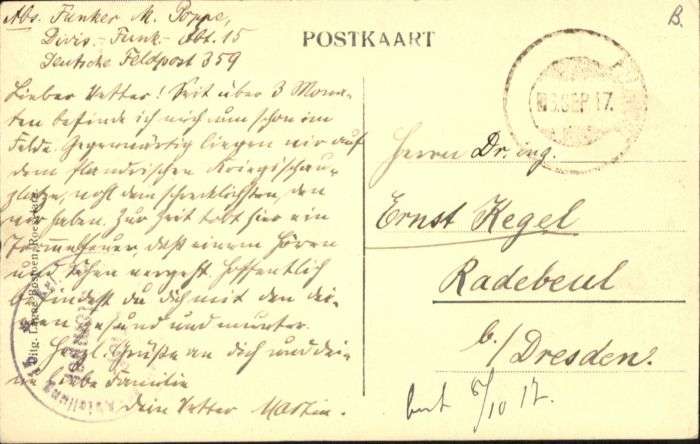 Abs. Funker M. Poppe,
Divis.-Funk-Abt. 15
Deutsche Feldpost 359
POSTKAART
B.
Lieber Vetter! Seit über 3 Mona-
ten befinde ich mich nun schon im
Felde. Gegenwärtig liegen wir auf
dem flandrischen Kriegsschau-
platze, wohl dem schrecklichsten, den
wir haben. Zur Zeit tobt hier ein
Trommelfeuer, daß einem Hören
und Sehen vergeht. Hoffentlich
befindest du dich mit den dei-
nen gesund und munter.
Herzl. Grüße an dich und dei-
ne liebe Familie
dein Vetter Martin.
SEP 17.
Herrn Dr. ing.
Ernst Kegel
Radebeul
b./Dresden.
5/10 17.
Uitg.